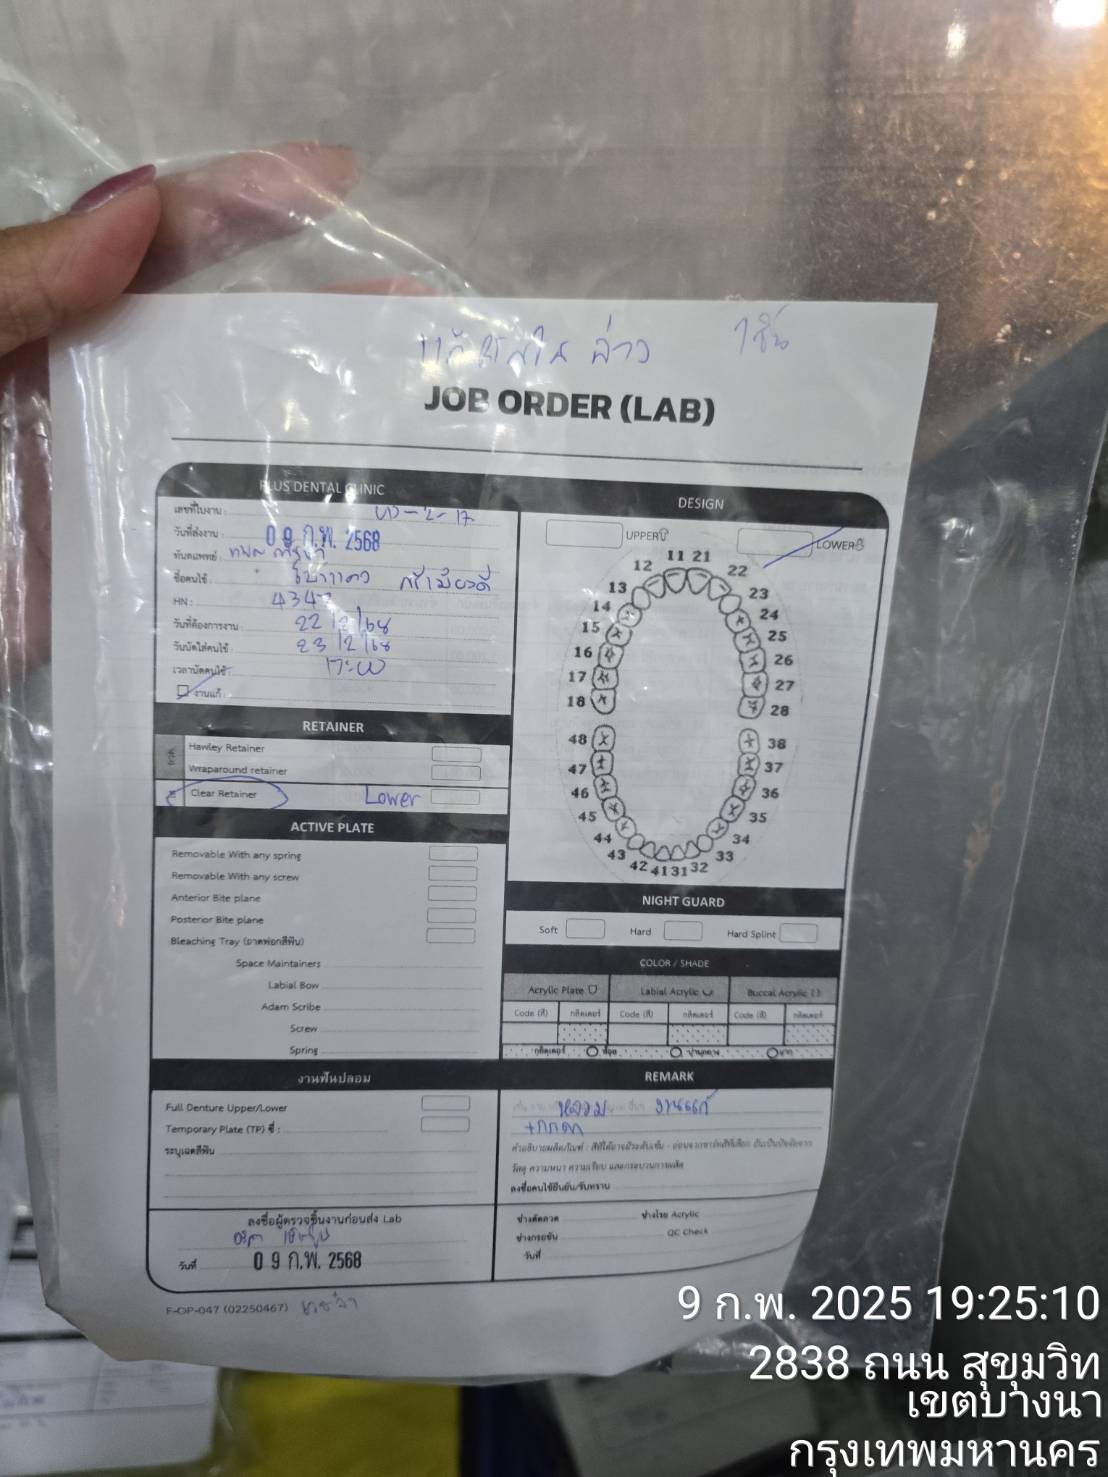 ล่าง 1 ชิ้น
JOB ORDER (LAB)
PLUS DENTAL CLINIC
เลขที่ใบงาน :
วันที่ส่งงาน : 09 ก.พ. 2568
ทันตแพทย์ :
ชื่อคนไข้ :
HN : 434
วันที่ต้องการงาน : 22/2/68
วันนัดใส่คนไข้ : 23/2/68
เวลานัดคนไข้ : 17:00
งานแก้ :
RETAINER
Hawley Retainer
Wraparound retainer
Clear Retainer Lower
ACTIVE PLATE
Removable With any spring
Removable With any screw
Anterior Bite plane
Posterior Bite plane
Bleaching Tray (ถาดฟอกสีฟัน)
Space Maintainers
Labial Bow
Adam Scribe
Screw
Spring
งานฟันปลอม
Full Denture Upper/Lower
Temporary Plate (TP) ซี่ :
ระบุเฉดสีฟัน
ลงชื่อผู้ตรวจชิ้นงานก่อนส่ง Lab
วันที่ 09 ก.พ. 2568
F-OP-047 (02250467)
DESIGN
UPPER LOWER
11 21
12 22
13 23
14 24
15 25
16 26
17 27
18 28
48 38
47 37
46 36
45 35
44 34
43 33
42 41 31 32
NIGHT GUARD
Soft Hard Hard Splint
COLOR / SHADE
Acrylic Plate Labial Acrylic Buccal Acrylic
Code (สี) กลิตเตอร์ Code (สี) กลิตเตอร์ Code (สี) กลิตเตอร์
กลิตเตอร์ น้อย ปานกลาง มาก
REMARK
หลวม งานแก้
คำอธิบายผลิตภัณฑ์ : สีที่ได้อาจมีระดับเข้ม - อ่อนจากชาร์ทสีที่เลือก อันเป็นปัจจัยจาก
วัสดุ ความหนา ความเรียบ และกระบวนการผลิต
ลงชื่อคนไข้ยืนยัน/รับทราบ
ช่างดัดลวด ช่างโรย Acrylic
ช่างกรอขัด QC Check
วันที่
9 ก.พ. 2025 19:25:10
2838 ถนน สุขุมวิท
เขตบางนา
กรุงเทพมหานคร